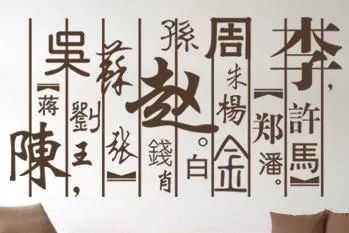 李，許馬
【鄭潘。
周朱楊金
孫
赵錢肖。白
蘇張】
劉王，
吳【蔣陳